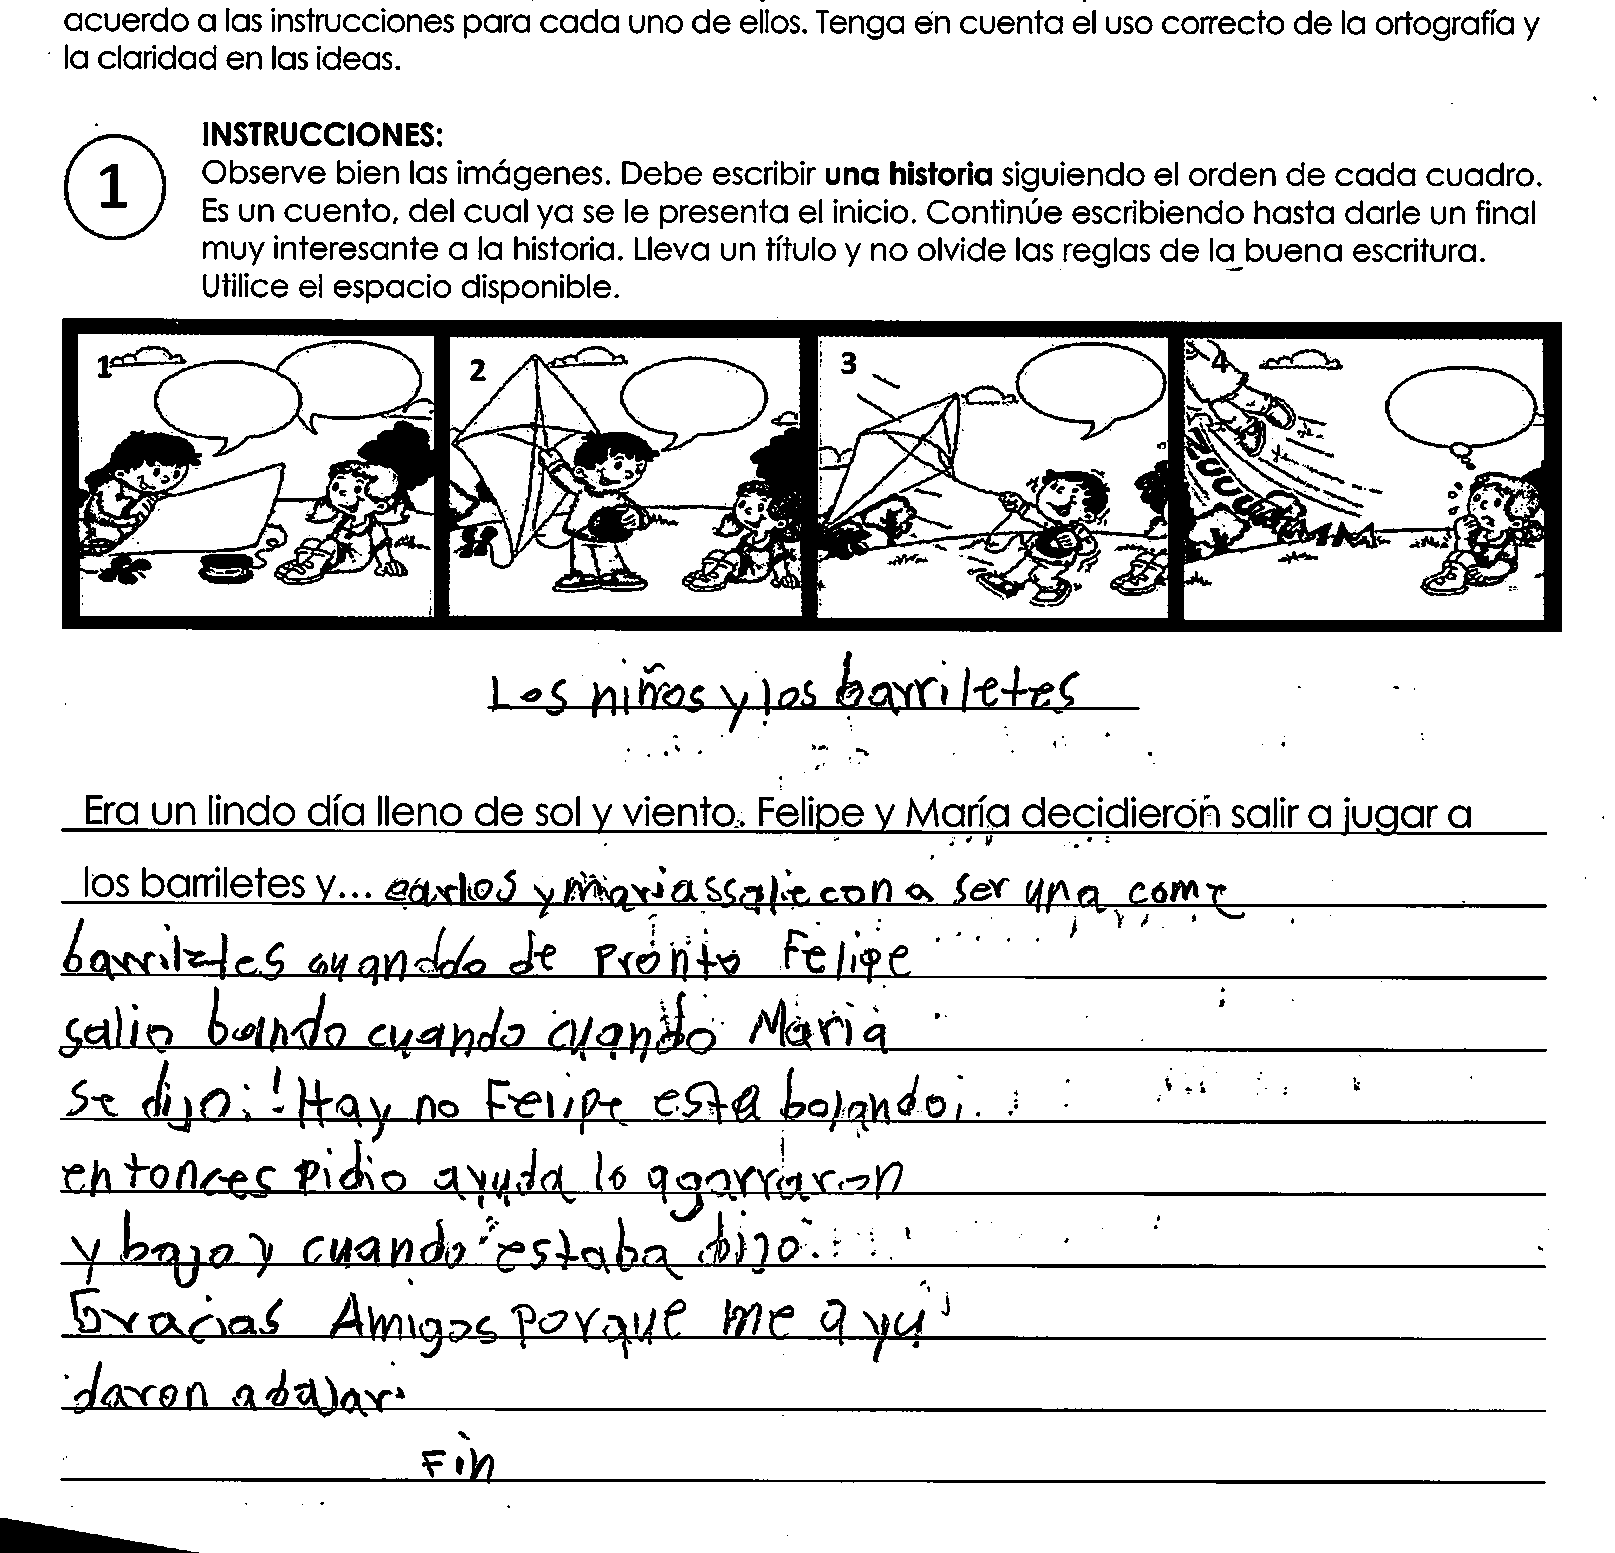 acuerdo a las instrucciones para cada uno de ellos. Tenga en cuenta el uso correcto de la ortografía y
la claridad en las ideas.
1
INSTRUCCIONES:
Observe bien las imágenes. Debe escribir una historia siguiendo el orden de cada cuadro.
Es un cuento, del cual ya se le presenta el inicio. Continúe escribiendo hasta darle un final
muy interesante a la historia. Lleva un título y no olvide las reglas de la buena escritura.
Utilice el espacio disponible.
1 2 3 4
Los niños y los barriletes
Era un lindo día lleno de sol y viento. Felipe y María decidieron salir a jugar a
los barriletes y... carlos y maria a ser una
barriletes de pronto Felipe
salio cuando cuando Maria
se dijo: ! Hay no Felipe esta bolando¡.
entonces pidio ayuda lo agarraron
y bajo y cuando estaba dijo.
Gracias Amigos porque me ayu
daron abajar.
Fin